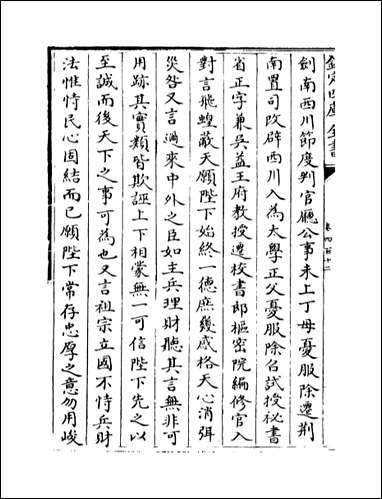 欽定四庫全書
卷四百十三
劍南西川節度判官廳公事未上丁母憂服除遷荆
南置司改辟西川入為太學正父憂服除召試授祕書
省正字兼吳益王府教授遷校書郎樞密院編修官入
對言飛蝗蔽天願陛下始終一德庶幾感格天心消弭
災咎又言邇來中外之臣如主兵理財聽其言無非可
用跡其實類皆欺誣上下相蒙無一可信陛下先之以
至誠而後天下之事可為也又言祖宗立國不恃兵財
法惟恃民心固結而已願陛下常存忠厚之意勿用峻